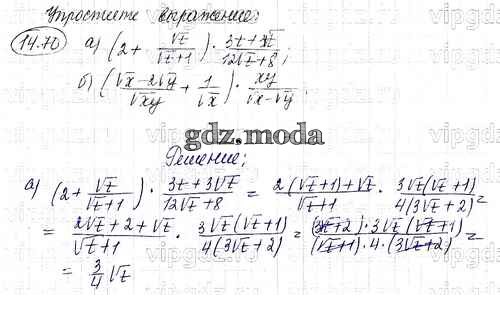 Упростите выражение:
14.70 а) (2 + √t/(√t+1)) · (3t+3√t)/(12√t+8);
б) ((√x-2√y)/√xy + 1/√x) · xy/(√x-√y).
gdz.moda
Решение;
а) (2 + √t/(√t+1)) · (3t+3√t)/(12√t+8) = (2(√t+1)+√t)/(√t+1) · (3√t(√t+1))/(4(3√t+2)) =
= (2√t+2+√t)/(√t+1) · (3√t(√t+1))/(4(3√t+2)) = ((3√t+2)·3√t(√t+1))/((√t+1)·4·(3√t+2)) =
= 3/4 √t